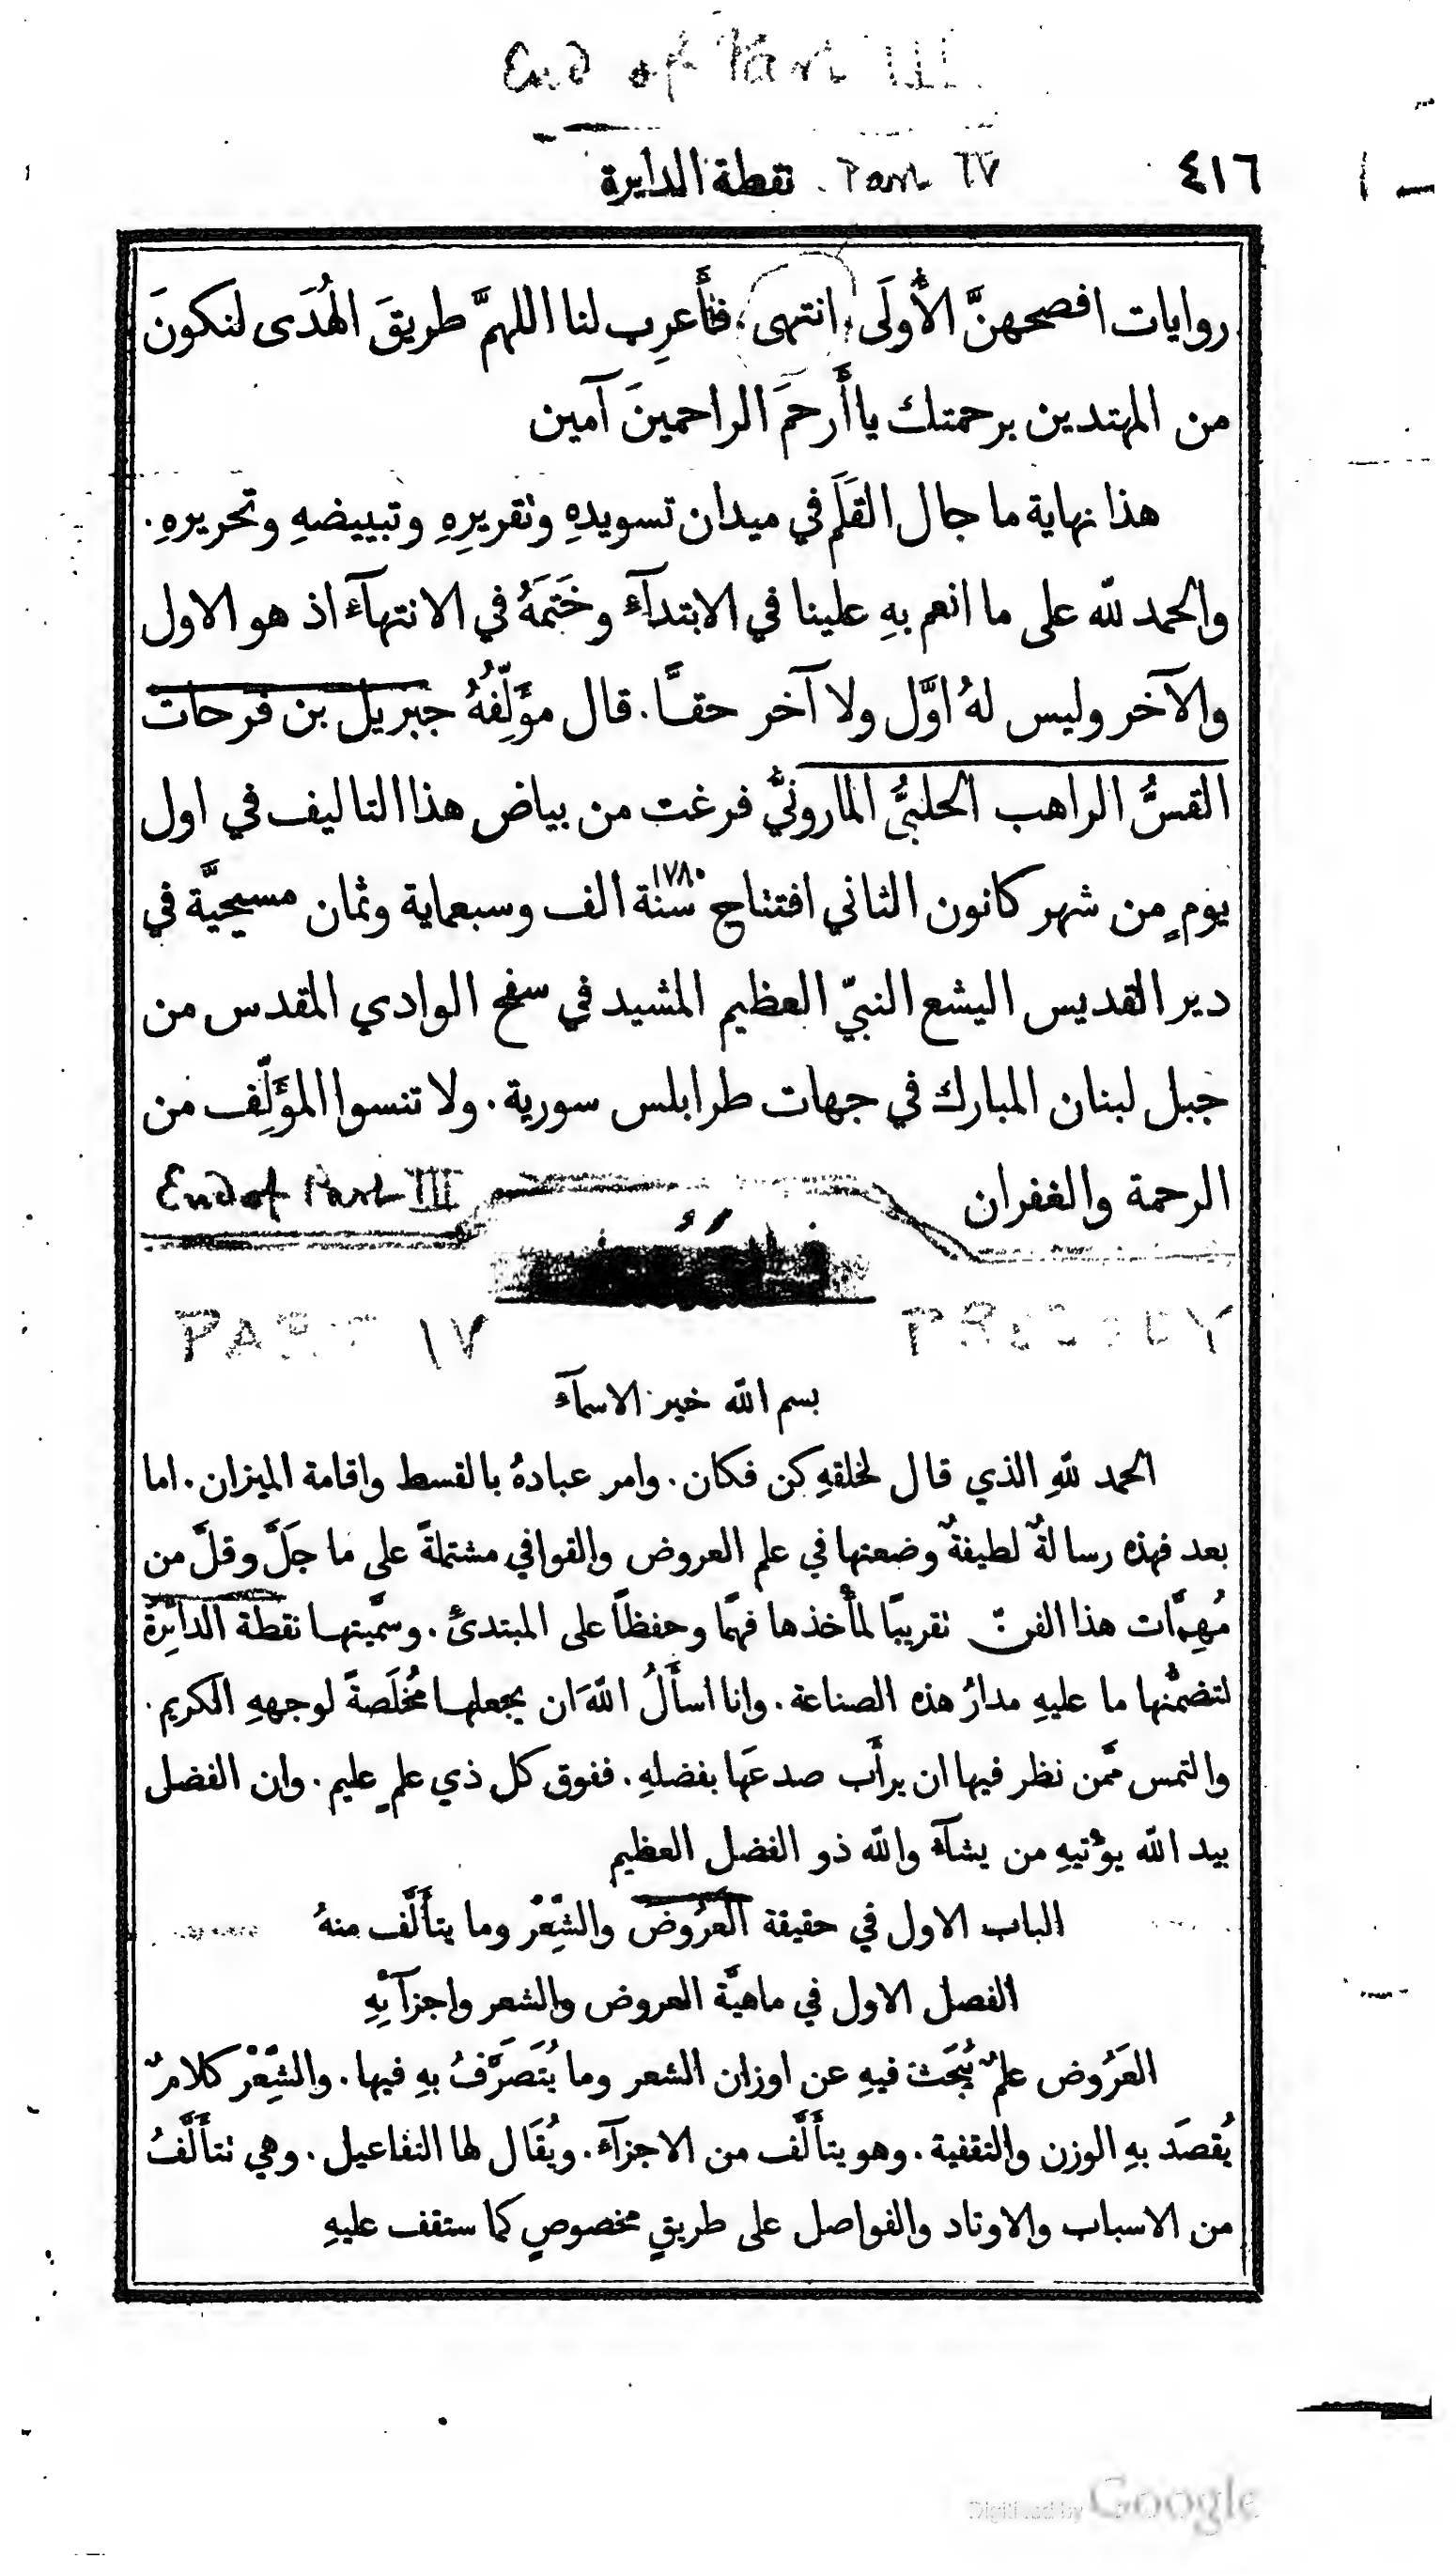 End of Part III
٤١٦ Part IV نقطة الدايرة
روايات افصحهنَّ الأُولَى انتهى فأَعرِب لنا اللهمَّ طريقَ الهُدَى لنكونَ
من المهتدين برحمتك يا أَرحمَ الراحمينَ آمين
هذا نهاية ما جال القَلَم في ميدان تسويدهِ وتقريرِهِ وتبييضهِ وتحريرهِ.
والحمد لله على ما انعم بهِ علينا في الابتدآءُ وخَتَمَهُ في الانتهآء اذ هو الاول
والآخر وليس لهُ اوَّل ولا آخر حقـًّا. قال مؤَلِّفُهُ جبريل بن فرحات
القسُّ الراهب الحلبيُّ المارونيُّ فرغت من بياض هذا التاليف في اول
يومٍ من شهر كانون الثاني افتتاح سنة الف وسبعماية وثمان مسيحيَّة في
١٧٨٠
دير القديس اليشع النبيّ العظيم المشيد في سفح الوادي المقدس من
جبل لبنان المبارك في جهات طرابلس سورية. ولا تنسوا المؤَلِّف من
الرحمة والغفران End of Part III
PART IV PROSODY
بسم الله خير الاسمآء
الحمد للهِ الذي قال لخلقهِ كن فكان. وامر عبادهُ بالقسط واقامة الميزان. اما
بعد فهذه رسالةٌ لطيفةٌ وضعتها في علم العروض والقوافي مشتملةً على ما جَلَّ وقلَّ من
مُهِمَّات هذا الفنّ تقريبًا لمأْخذها فهمًا وحفظًا على المبتدئ. وسمَّيتهـا نقطة الدائرة
لتضمُّنها ما عليهِ مدارُ هذه الصناعة. وانا اسأَلُ اللهَ ان يجعلهـا مُخْلَصةً لوجههِ الكريم.
والتمس ممَّن نظر فيها ان يرأَب صدعَها بفضلهِ. ففوق كل ذي علمٍ عليم. وان الفضل
بيد الله يؤْتيهِ من يشآءُ والله ذو الفضل العظيم
الباب الاول في حقيقة العَرُوض والشِّعْر وما يتأَلَّف منهُ
الفصل الاول في ماهيَّة العروض والشعر واجزآئِهِ
العَرُوض علمٌ يُبحَث فيهِ عن اوزان الشعر وما يُتَصَرَّفُ بهِ فيها. والشِّعْر كلامٌ
يُقصَد بهِ الوزن والتقفية. وهو يتأَلَّف من الاجزآء. ويُقَال لها التفاعيل. وهي تتأَلَّفُ
من الاسباب والاوتاد والفواصل على طريقٍ مخصوصٍ كما ستقف عليهِ
Digitized by Google